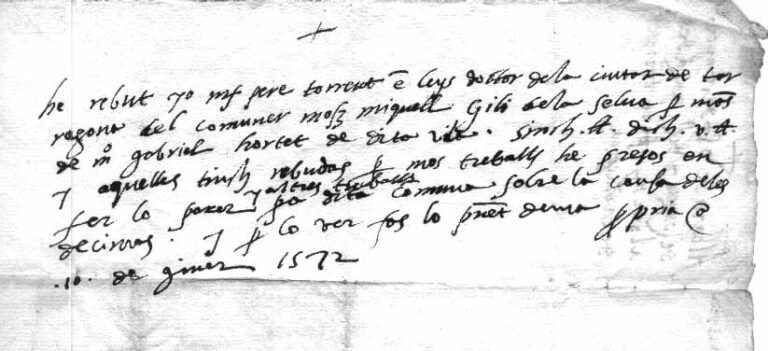 he rebut yo mſ pere torrent ē leys doctor dela ciutat de tar
ragona del comuner mosſ miquell Gili dela selva ꝑ mās
de mº gabriel hortet de dita vila . sinch ₶ dich . v ₶
y aquelles tinch rebudas ꝑ mos treballs he presos en
fer lo parer y altres treballs ꝑa dita comuna sobre la causa deles
decimas . y ꝑ lo ver fas lo pñet de ma ꝓpria
.10. de giner 1572